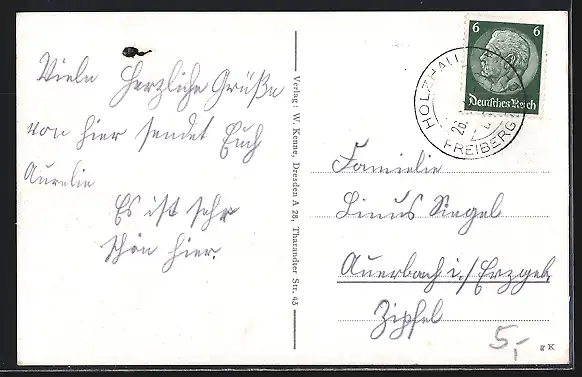 Viele Herzliche Grüße
von hier sendet Euch
Aurelie
Es ist sehr
schön hier.
Verlag: W. Kenne, Dresden A 28, Tharandter Str. 43
6 6
Deutsches Reich
HOLZHAU
FREIBERG
26.
Familie
Linus Siegel
Auerbach i./Erzgeb.
Zipfel
5,-
g K